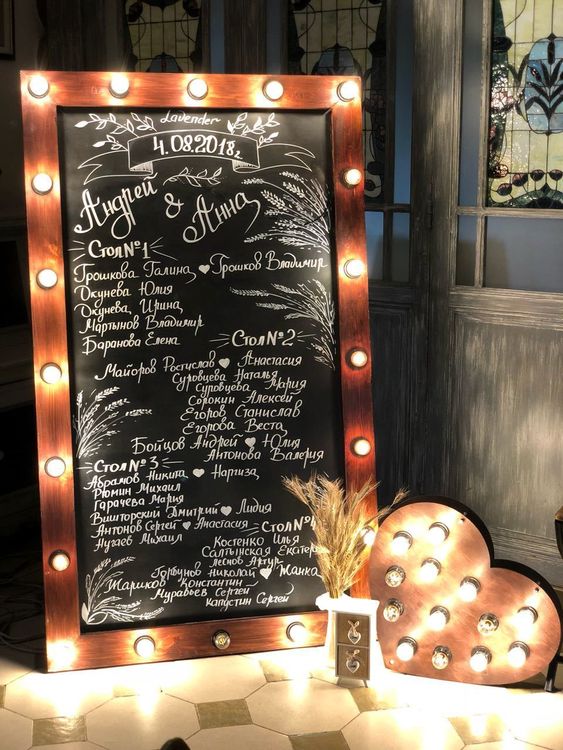 Lavender
4.08.2018г.
Андрей
& Анна
Стол №1
Грошкова Галина ♥ Грошков Владимир
Окунева Юлия
Окунева Ирина
Мартынов Владимир
Баранова Елена
Стол №2
Майоров Ростислав ♥ Анастасия
Суровцева Наталья
Суровцева Мария
Сорокин Алексей
Егоров Станислав
Егорова Веста
Бойцов Андрей ♥ Юлия
Антонова Валерия
Стол №3
Абрамов Никита ♥ Наргиза
Рюмин Михаил
Гарачева Мария
Вишторский Дмитрий ♥ Лидия
Антонов Сергей ♥ Анастасия
Нугаев Михаил
Стол №4
Костенко Илья
Салтынская Екатер
Артур
Горбунов Николай ♥ Жанка
Жариков Константин
Муравьев Сергей
Капустин Сергей